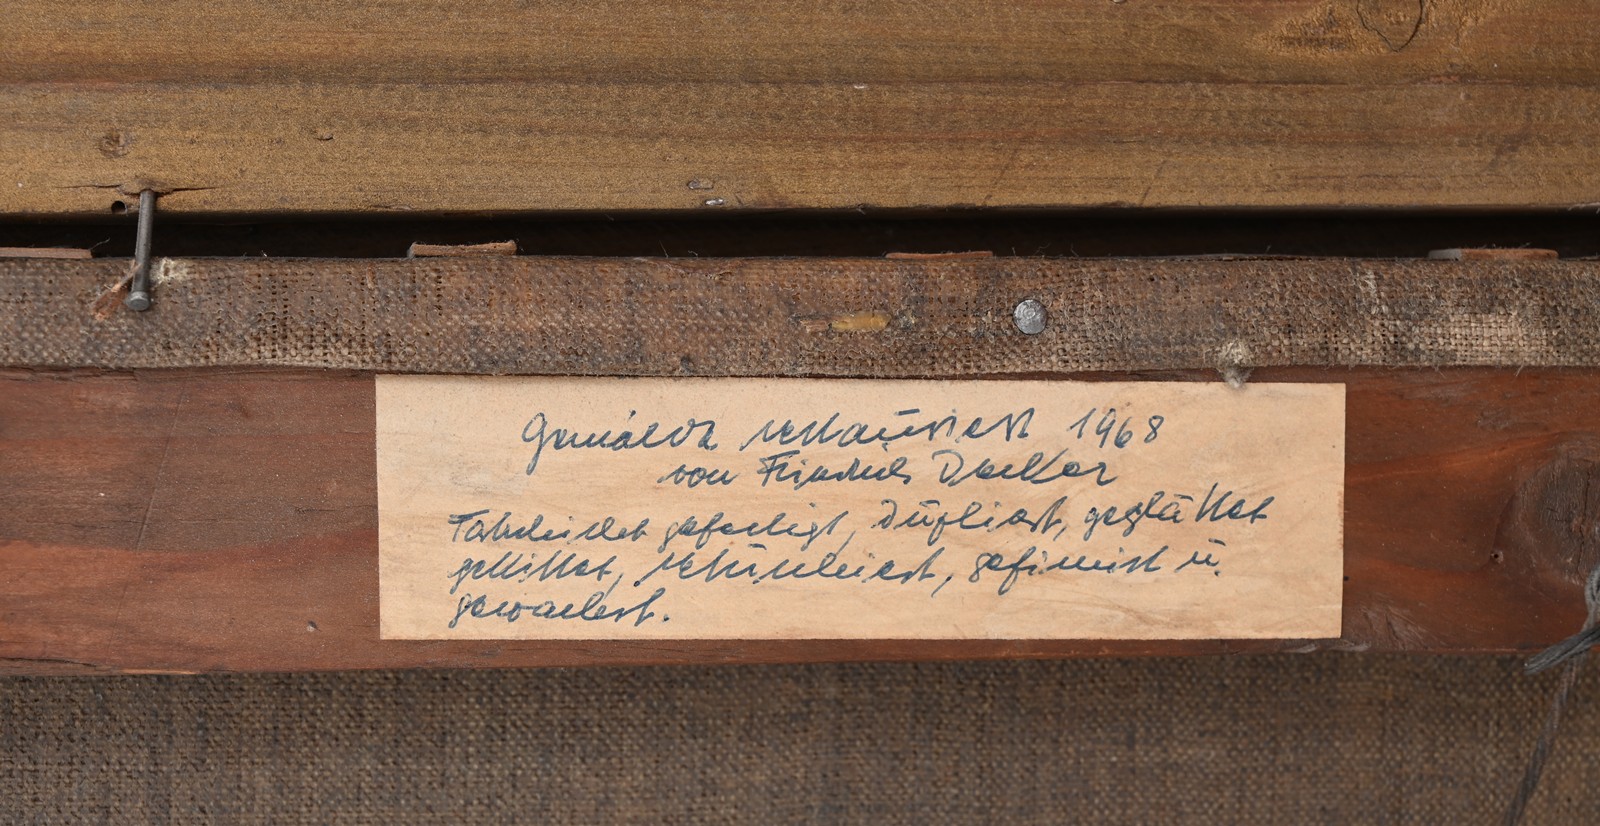 Gemälde restauriert 1968
von Friedrich Decker
Farbschichte gefestigt, dupliert, geglättet
gekittet, retuschiert, gefirnist u.
gewachst.